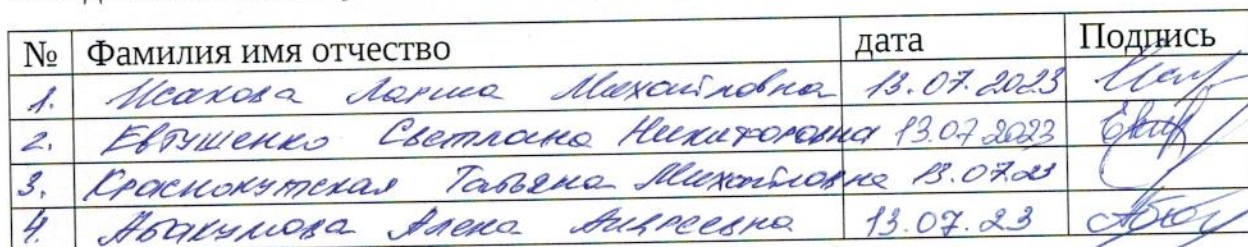 № Фамилия имя отчество дата Подпись
1. Исакова Лариса Михайловна 13.07.2023
2. Евтушенко Светлана Никифоровна 13.07.2023
3. Краснокутская Татьяна Михайловна 13.07.23
4. Абакумова Алена Андреевна 13.07.23